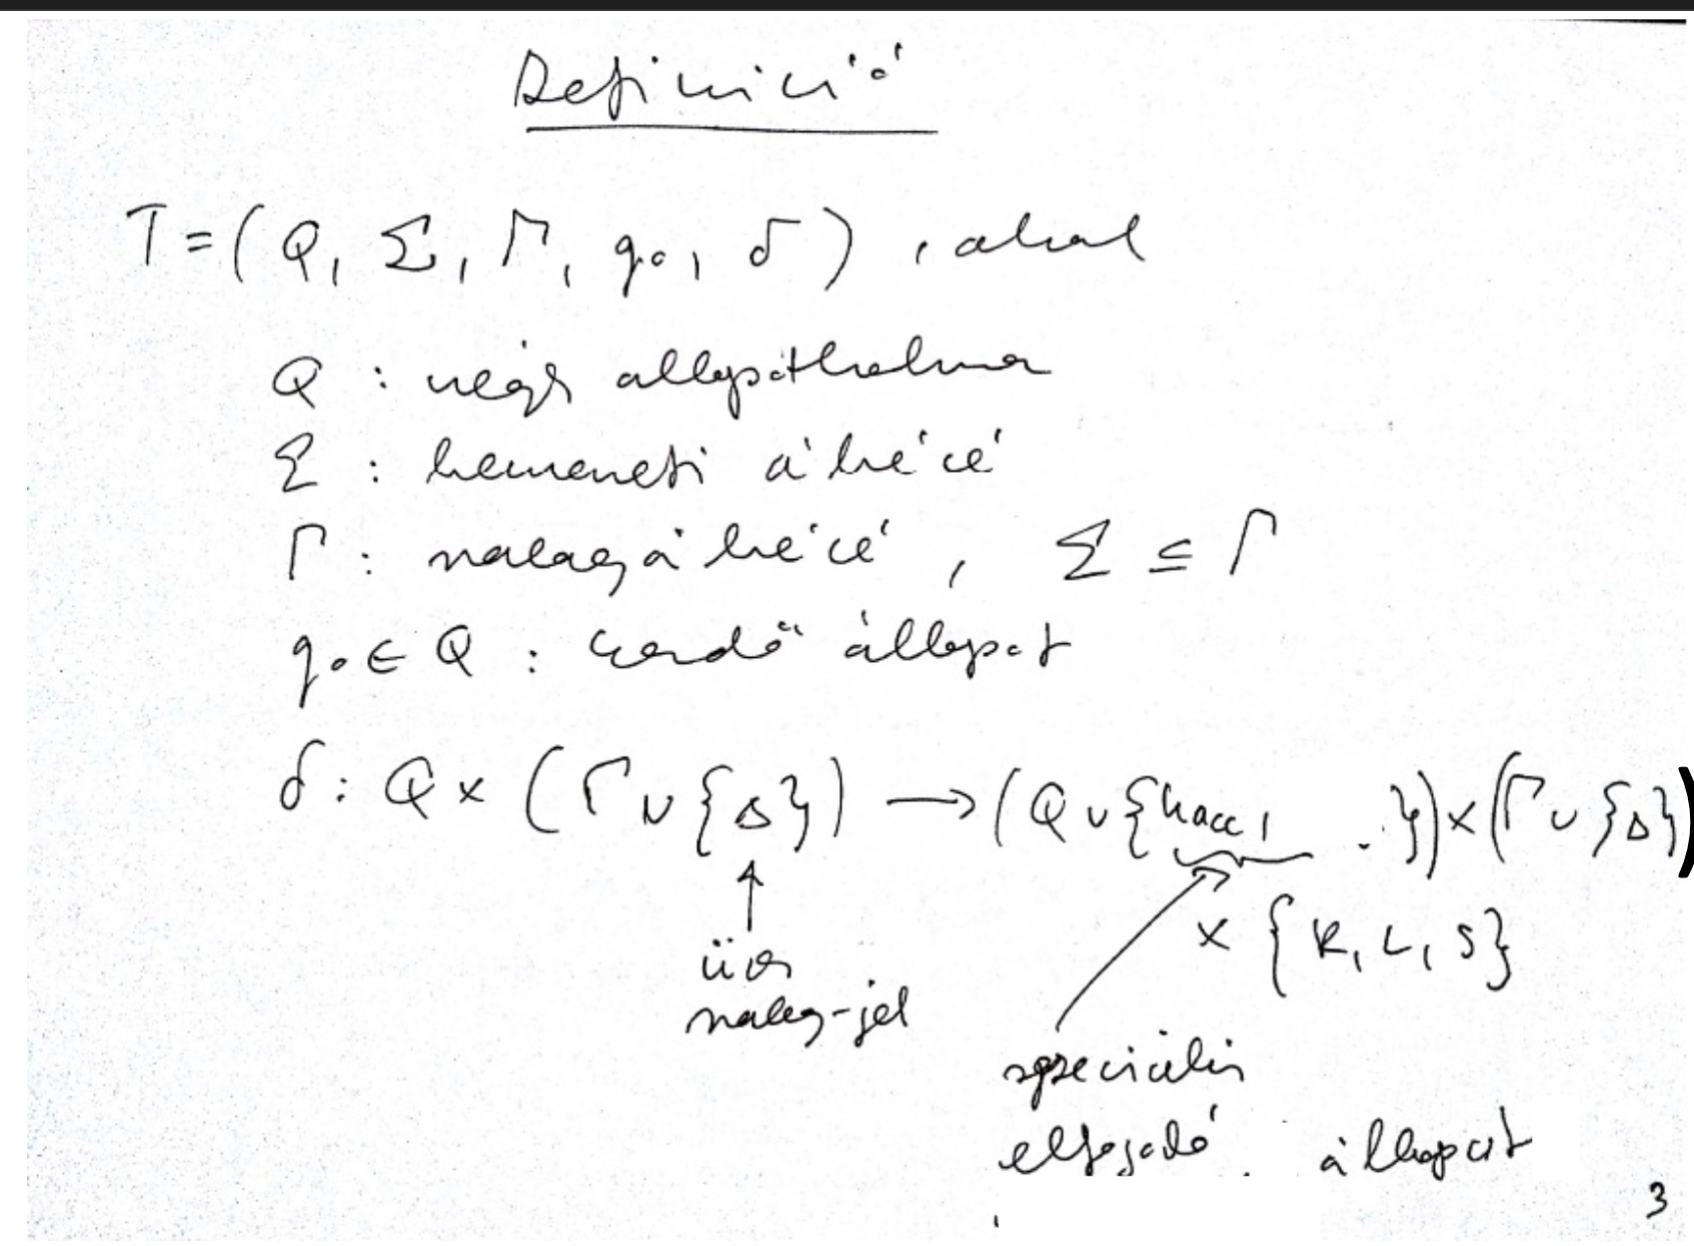 Definíció
T = (Q, Σ, Γ, q₀, δ), ahol
Q : véges állapothalmaz
Σ : bemeneti ábécé
Γ : szalagábécé, Σ ⊆ Γ
q₀ ∈ Q : kezdő állapot
δ : Q × (Γ ∪ {Δ}) → (Q ∪ {hacc, . }) × (Γ ∪ {Δ})
× {R, L, S}
üres
szalag-jel
speciális
elfogadó állapot
3